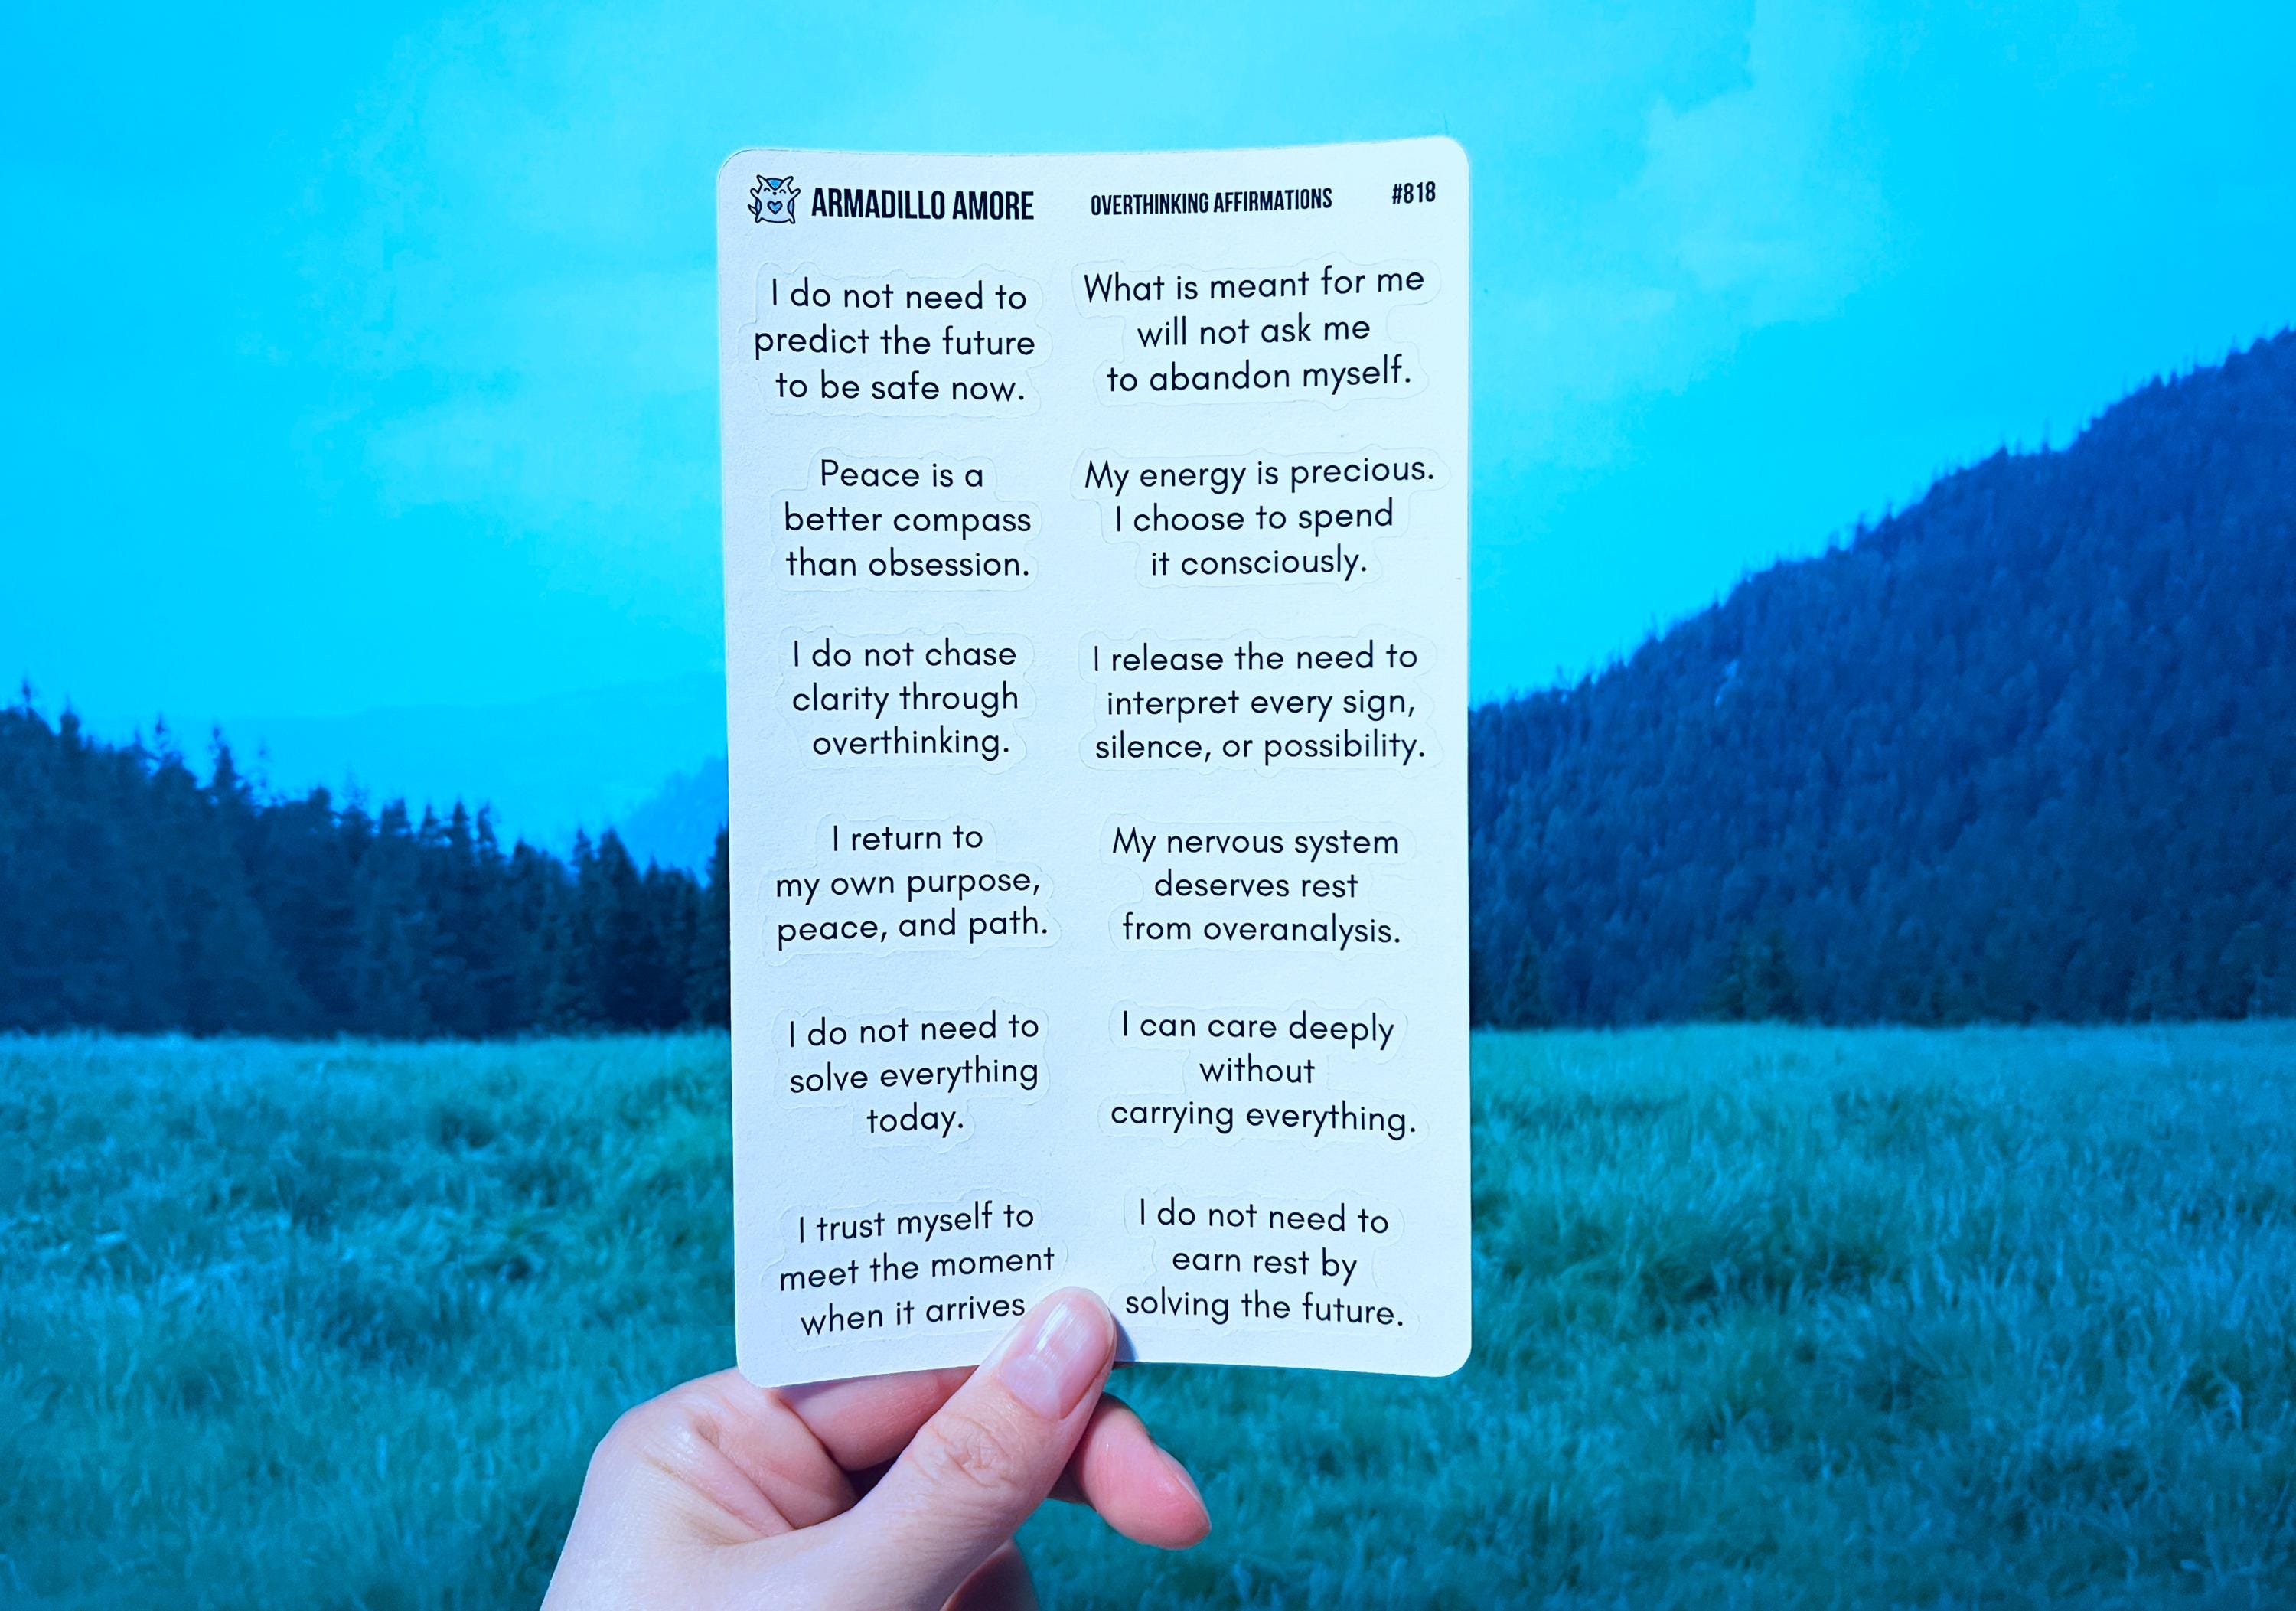 ARMADILLO AMORE
OVERTHINKING AFFIRMATIONS
#818
I do not need to
predict the future
to be safe now.
What is meant for me
will not ask me
to abandon myself.
Peace is a
better compass
than obsession.
My energy is precious.
I choose to spend
it consciously.
I do not chase
clarity through
overthinking.
I release the need to
interpret every sign,
silence, or possibility.
I return to
my own purpose,
peace, and path.
My nervous system
deserves rest
from overanalysis.
I do not need to
solve everything
today.
I can care deeply
without
carrying everything.
I trust myself to
meet the moment
when it arrives
I do not need to
earn rest by
solving the future.